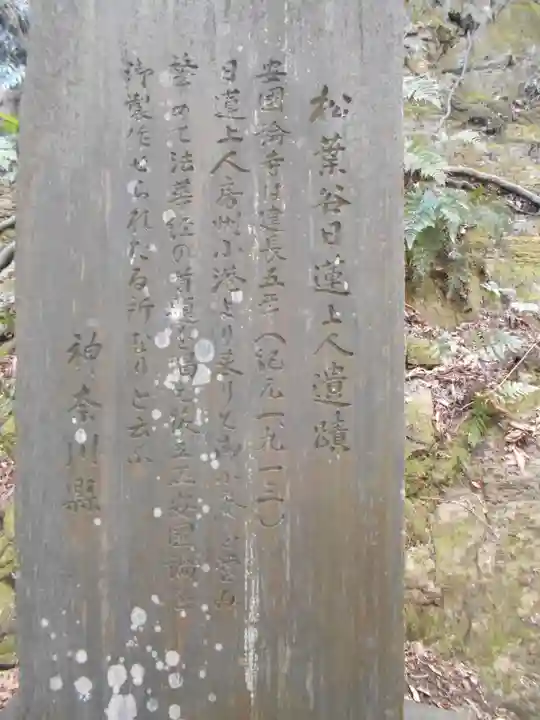 松葉谷日蓮上人遺蹟
安国論寺は建長五年（紀元一九一三）
日蓮上人房州小湊より来りて
始めて法華経の首題を唱へ 立正安国論を
御製作せられたる所なりと云ふ
神奈川縣